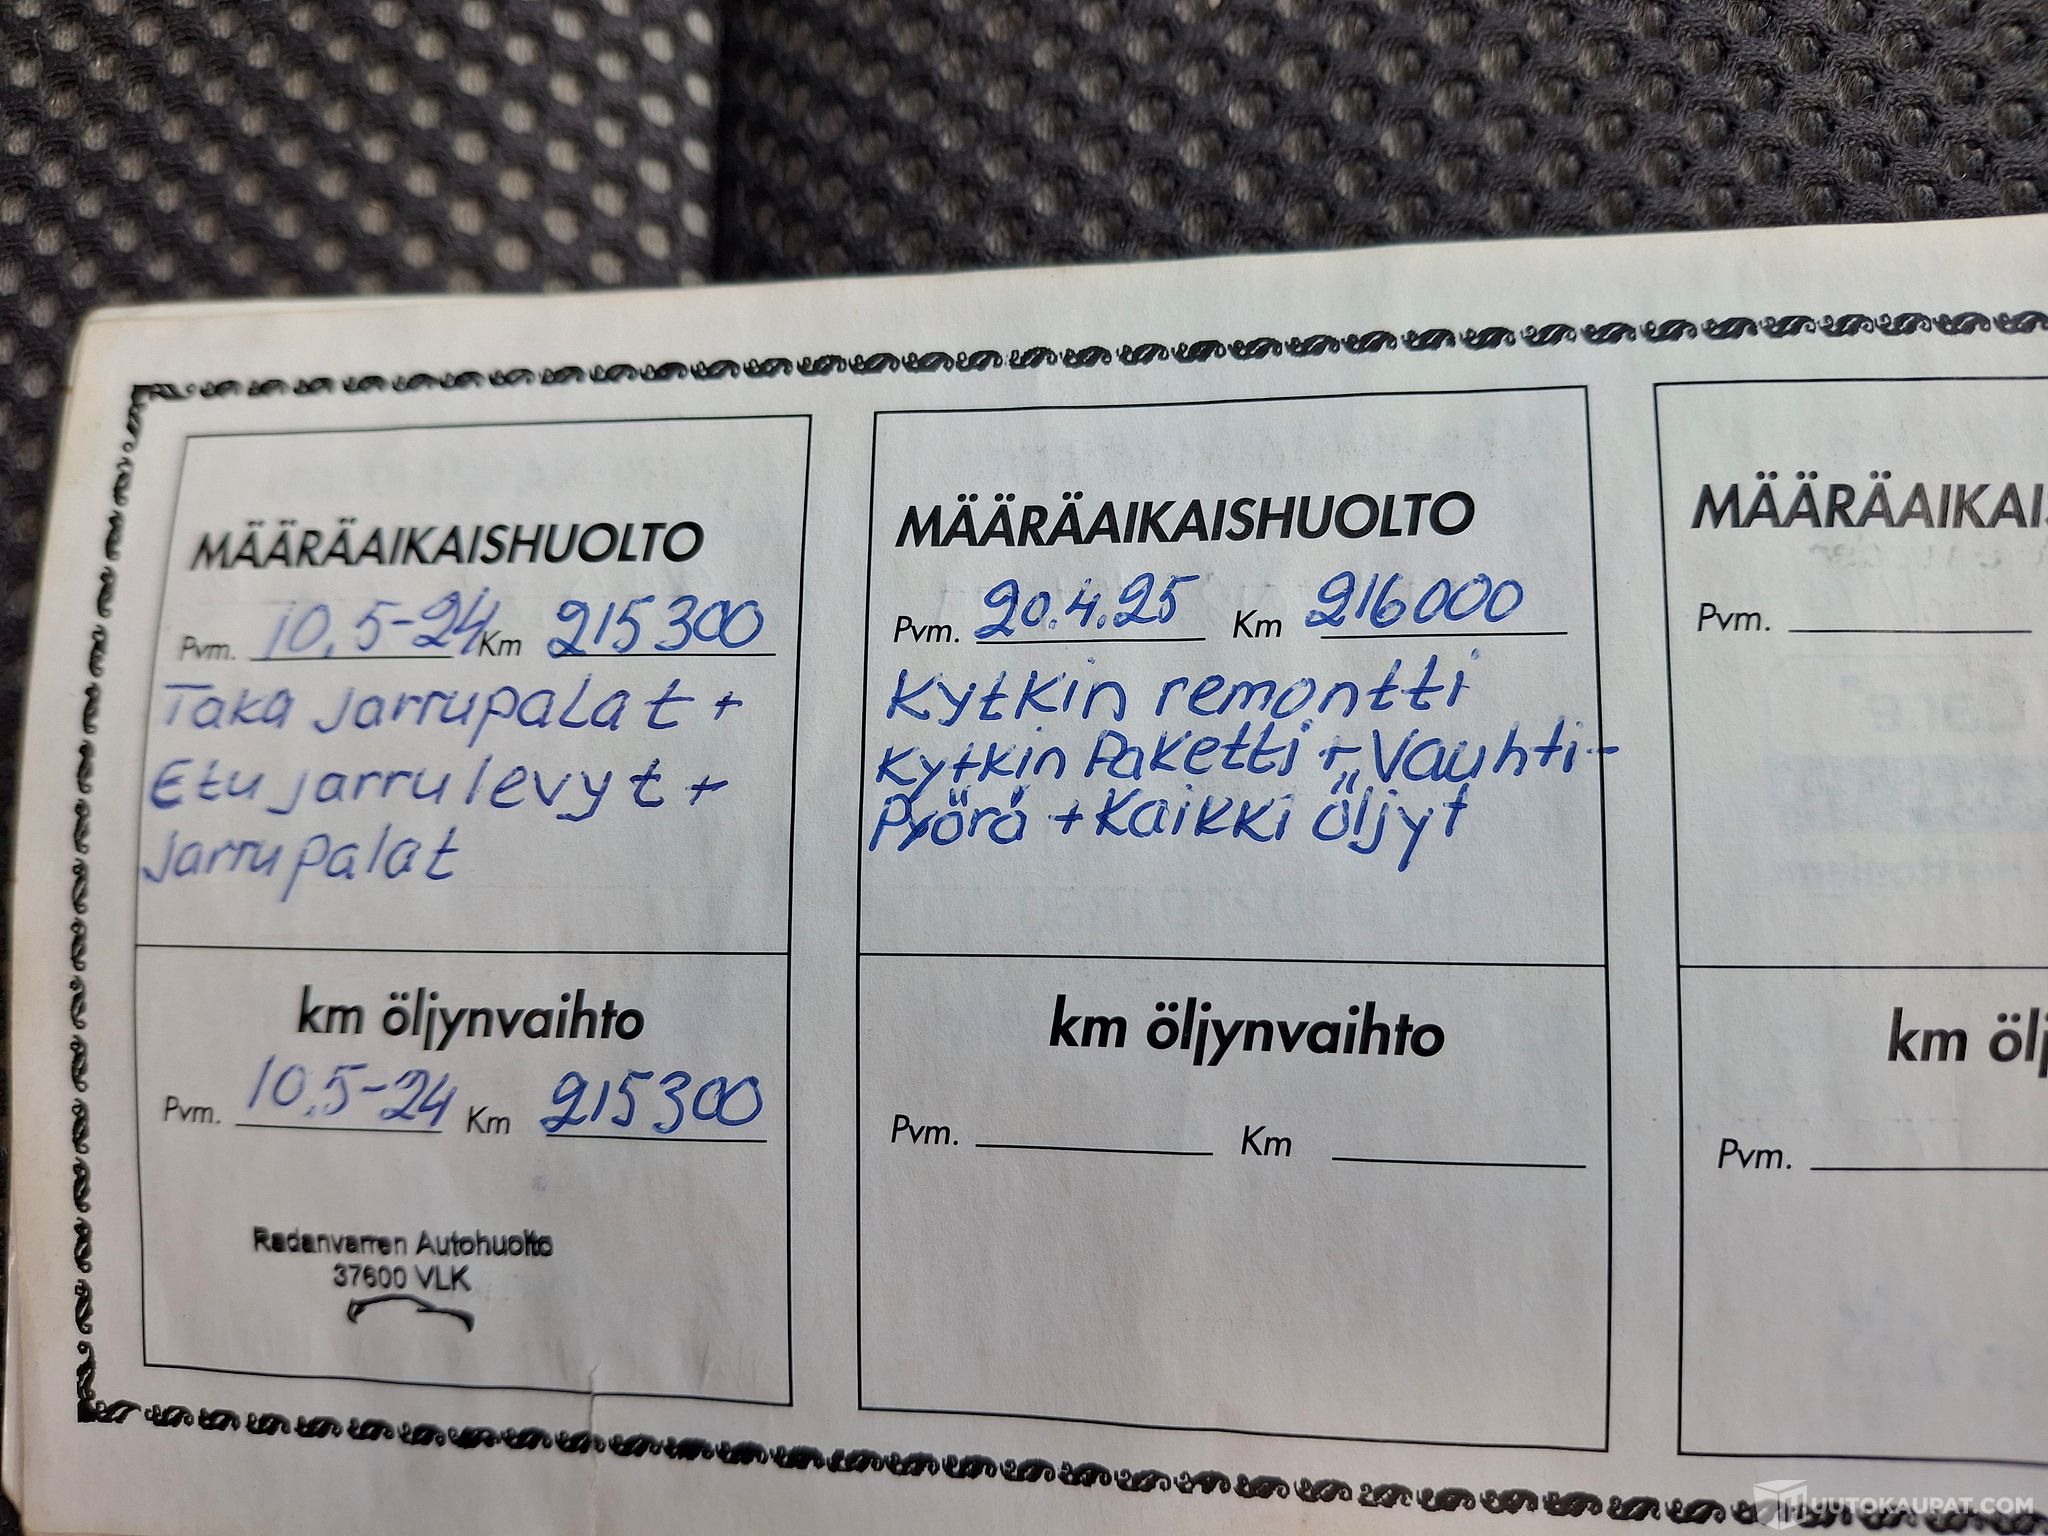 MÄÄRÄAIKAISHUOLTO
Pvm. 10.5-24 Km 215300
Taka jarrupalat +
Etu jarrulevyt +
Jarrupalat
km öljynvaihto
Pvm. 10.5-24 Km 215300
Radanvarren Autohuolto
37600 VLK
MÄÄRÄAIKAISHUOLTO
Pvm. 20.4.25 Km 216000
Kytkin remontti
Kytkin Paketti + Vauhti-
Pyörä + Kaikki öljyt
km öljynvaihto
Pvm. Km
MÄÄRÄAIKAIS
Pvm.
km öl
Pvm.
HUUTOKAUPAT.COM